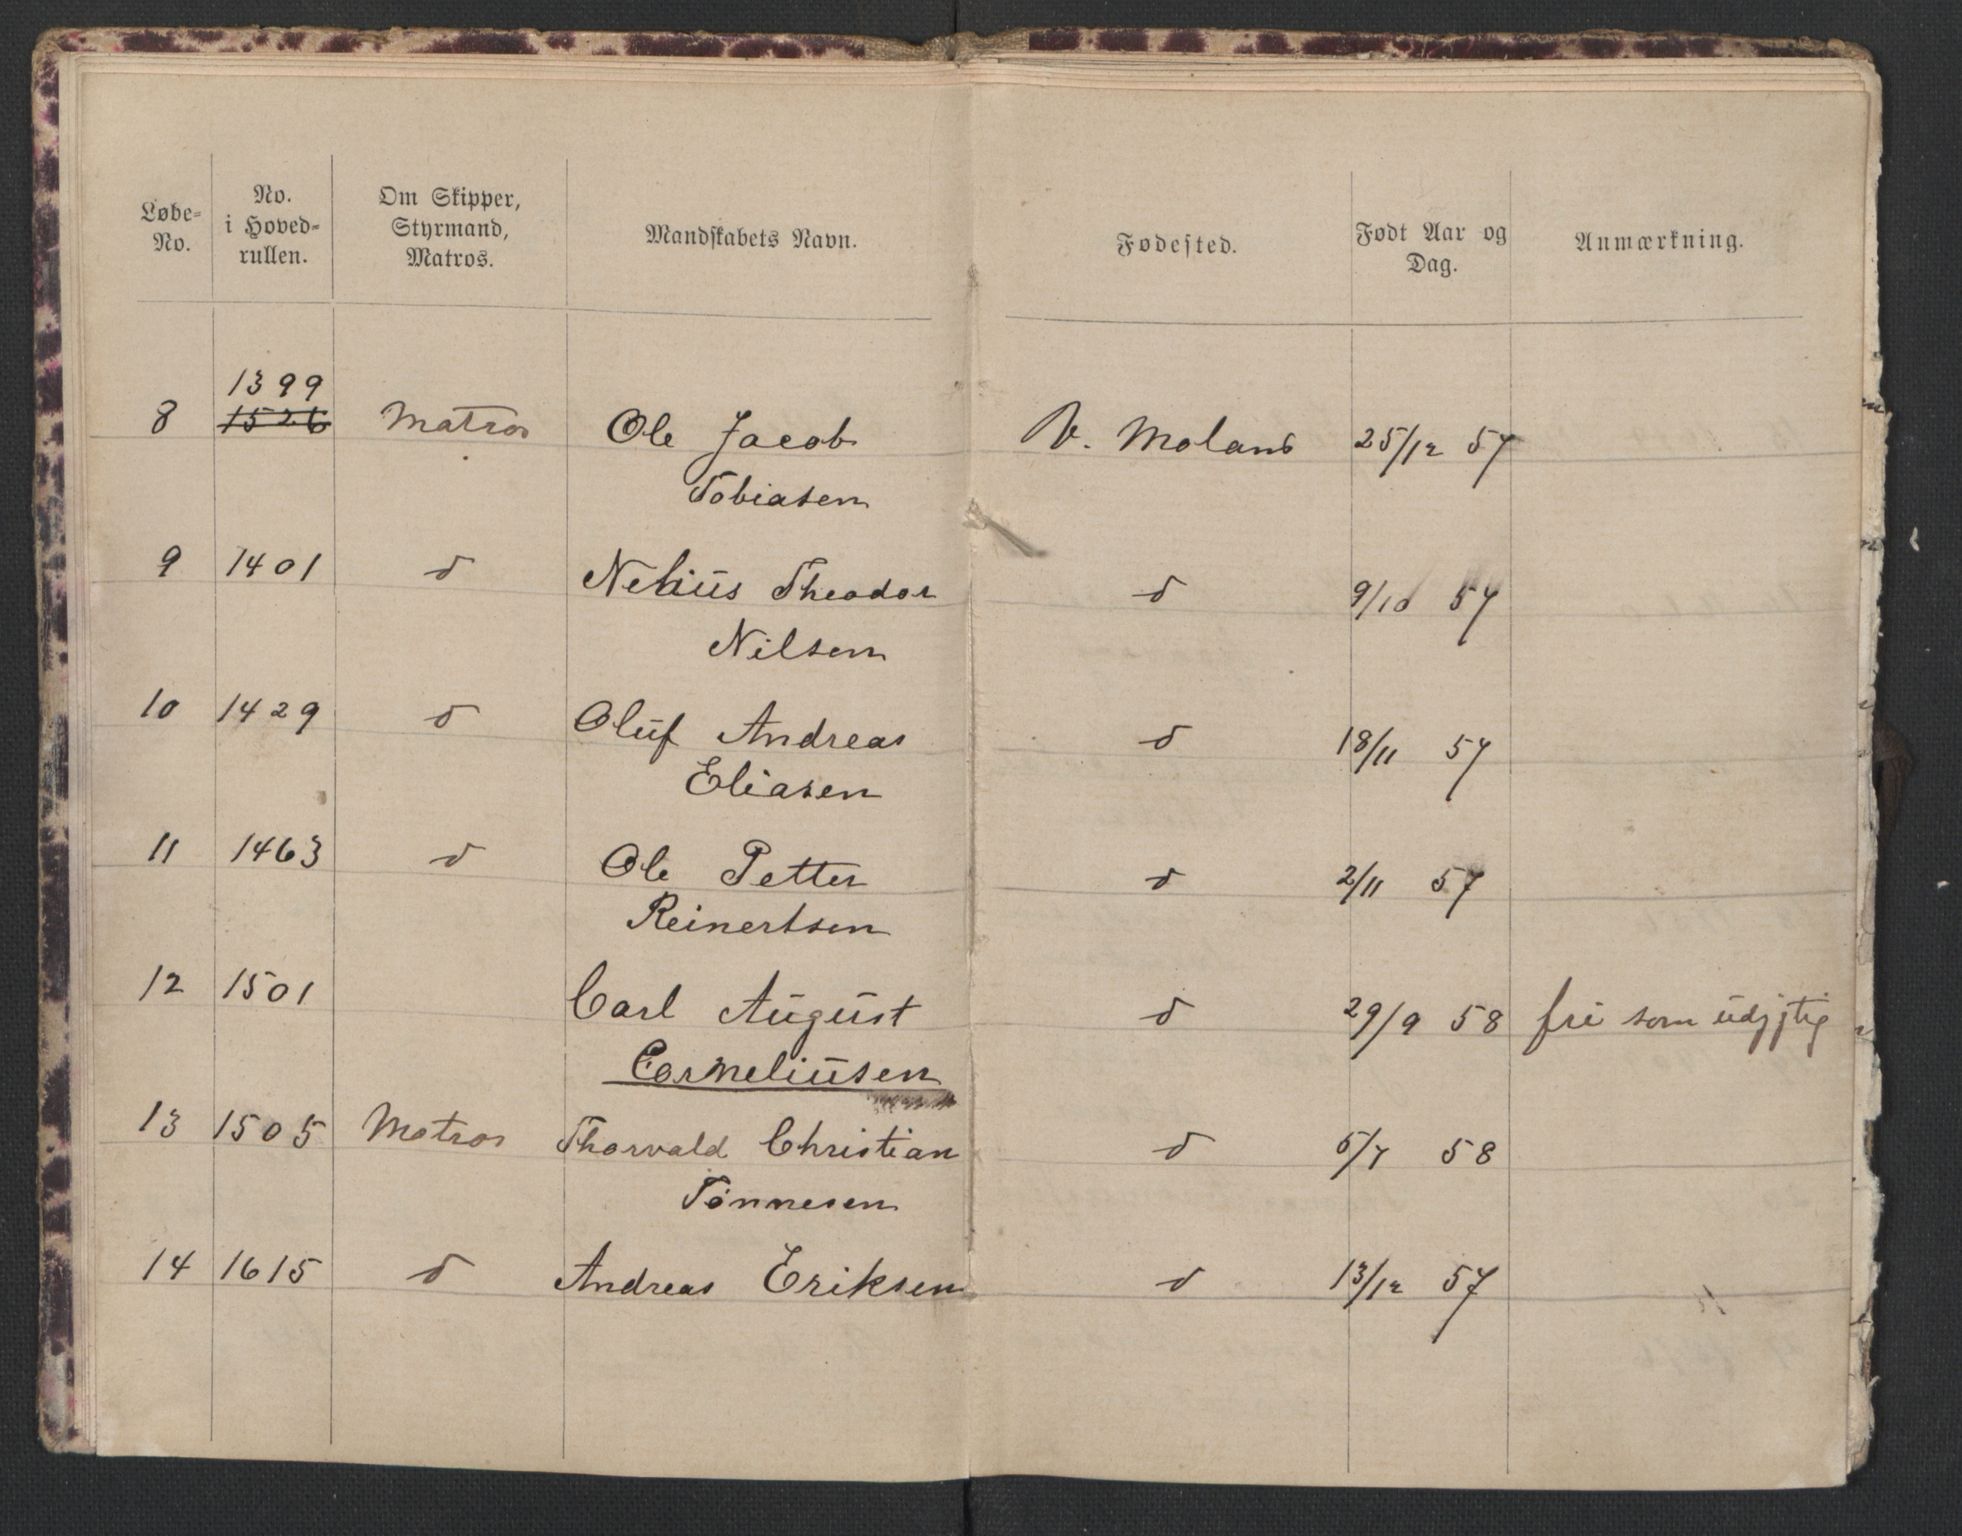 Løbe-No. | No. i Hoved-rullen. | Om Skipper, Styrmand, Matros. | Mandskabets Navn. | Fødested. | Født Aar og Dag. | Anmærkning.
1399
8 | 1526 | Matros | Ole Jacob | V. Moland | 25/12 57
Tobiasen
9 | 1401 | d | Nelius Theodor | d | 9/10 57
Nilsen
10 | 1429 | d | Oluf Andreas | d | 18/11 57
Eliasen
11 | 1463 | d | Ole Petter | d | 2/11 57
Reinertsen
12 | 1501 | Carl August | d | 29/9 58 | fri som udygtig
Corneliusen
13 | 1505 | Matros | Thorvald Christian | d | 5/7 58
Tønnesen
14 | 1615 | d | Andreas Eriksen | d | 13/12 57